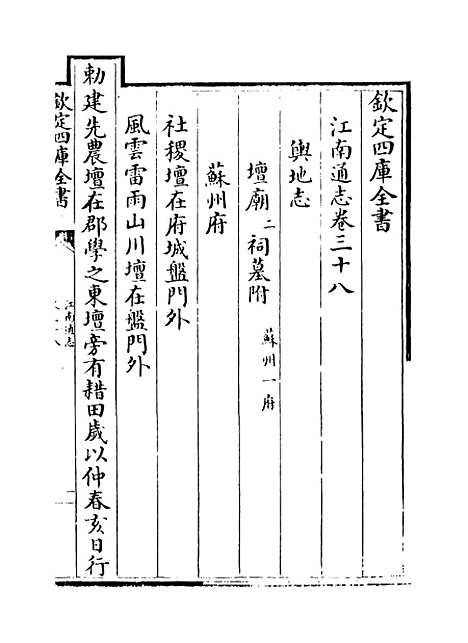 欽定四庫全書
江南通志卷三十八
輿地志
壇廟二 祠墓附 蘇州一府
蘇州府
社稷壇在府城盤門外
風雲雷雨山川壇在盤門外
勅建先農壇在郡學之東壇旁有耤田歲以仲春亥日行
欽定四庫全書
江南通志